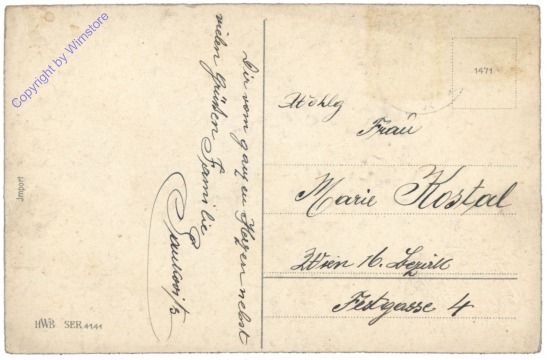 Copyright by Winstore
Dir vom ganzen Herzen nebst
vielen Grüßen Familie
1471
Wohlg
Frau
Marie Kostal
Wien 16. Bezirk
Festgasse 4
Import
HWB SER 4141